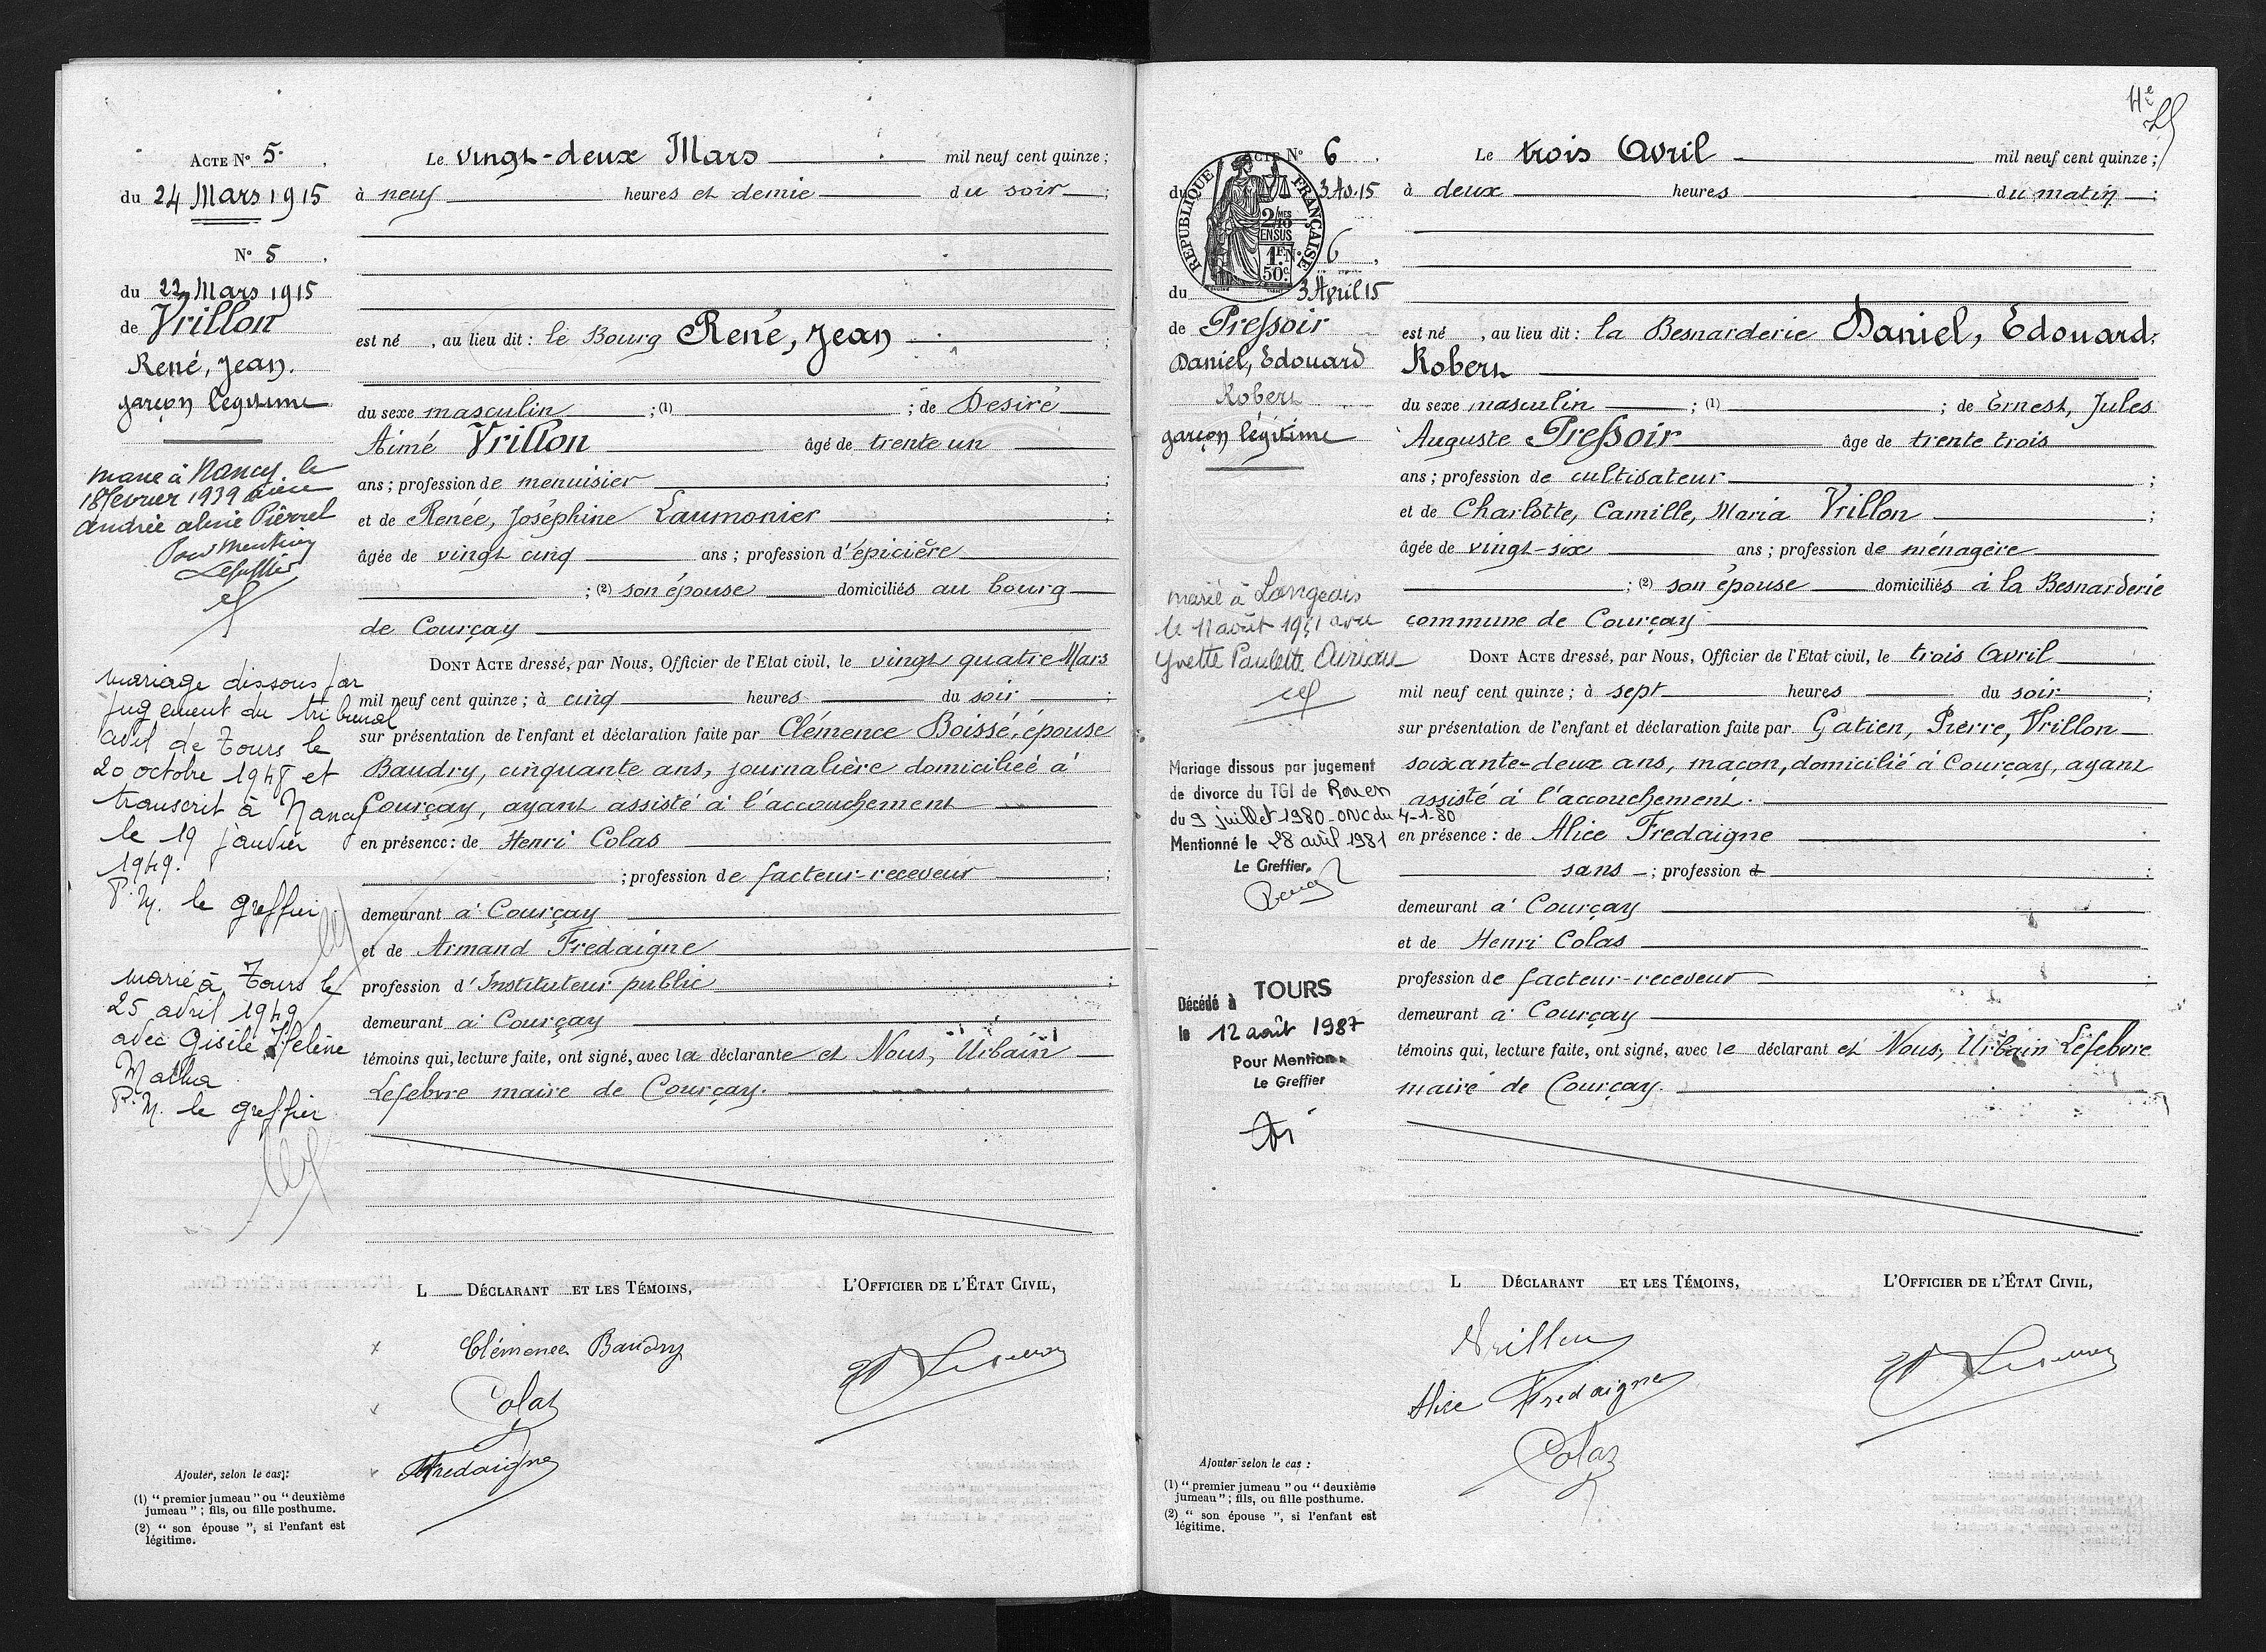 Acte N° 5.
du 24 Mars 1915
N° 5
du 22 Mars 1915
de Vrillon
René, Jean.
garçon légitime
marié à Nancy le
18 février 1939 avec
Andrée Pierrel
Pour Mention
mariage dissous par
jugement du tribunal
civil de Tours le
20 octobre 1948 et
transcrit à Nancy
le 19 janvier
1949.
P. M. le greffier
marié à Tours le
25 avril 1949
avec Gisèle Hélène
P. M. le greffier
Le vingt-deux Mars mil neuf cent quinze;
à neuf heures et demie du soir ;
est né , au lieu dit : le Bourg René, Jean ;
du sexe masculin ; (1) ; de Désiré
Aimé Vrillon âgé de trente un
ans ; profession de menuisier ;
et de Renée, Joséphine Laumonier ;
âgée de vingt cinq ans ; profession d'épicière
; (2) son épouse domiciliés au bourg
de Courçay
Dont Acte dressé, par Nous, Officier de l'Etat civil, le vingt quatre Mars
mil neuf cent quinze ; à cinq heures du soir ;
sur présentation de l'enfant et déclaration faite par Clémence Boissé, épouse
Baudry, cinquante ans, journalière domiciliée à
Courçay, ayant assisté à l'accouchement
en présence : de Henri Colas
; profession de facteur-receveur ;
demeurant à Courçay
et de Armand Fredaigne
profession d'Instituteur public ;
demeurant à Courçay
témoins qui, lecture faite, ont signé, avec la déclarante et Nous, Urbain
Lefebvre maire de Courçay.
L Déclarant et les Témoins,
L'Officier de l'État Civil,
Clémence Baudry
Colas
Fredaigne
Ajouter, selon le cas :
(1) “ premier jumeau ” ou “ deuxième
jumeau ” ; fils, ou fille posthume.
(2) “ son épouse ”, si l'enfant est
légitime.
Acte N° 6
du 3 Av. 15
N° 6
du 3 Avril 15
de Pressoir
Daniel, Edouard
Robert
garçon légitime
RÉPUBLIQUE FRANÇAISE
2/10MES
EN SUS
1F
50c
marié à Langeais
Yvette Paulette
Mariage dissous par jugement
de divorce du TGI de Rouen
du 9 juillet 1980 - ONC du 4-1-80
Mentionné le 28 avril 1981
Le Greffier,
Décédé à TOURS
le 12 août 1987
Pour Mention
Le Greffier
Le trois Avril mil neuf cent quinze ;
à deux heures du matin ;
est né , au lieu dit : la Besnarderie Daniel, Edouard,
Robert
du sexe masculin ; (1) ; de Ernest, Jules
Auguste Pressoir âgé de trente trois
ans ; profession de cultivateur ;
et de Charlotte, Camille, Maria Vrillon ;
âgée de vingt-six ans ; profession de ménagère
; (2) son épouse domiciliés à la Besnarderie
commune de Courçay
Dont Acte dressé, par Nous, Officier de l'Etat civil, le trois Avril
mil neuf cent quinze ; à sept heures du soir ;
sur présentation de l'enfant et déclaration faite par Gatien, Pierre, Vrillon
soixante-deux ans, maçon, domicilié à Courçay, ayant
assisté à l'accouchement.
en présence : de Alice Fredaigne
sans ; profession
demeurant à Courçay
et de Henri Colas
profession de facteur-receveur
demeurant à Courçay
témoins qui, lecture faite, ont signé, avec le déclarant et Nous, Urbain Lefebvre
maire de Courçay.
L Déclarant et les Témoins,
L'Officier de l'État Civil,
Vrillon
Alice Fredaigne
Colas
Ajouter selon le cas :
(1) “ premier jumeau ” ou “ deuxième
jumeau ” ; fils, ou fille posthume.
(2) “ son épouse ”, si l'enfant est
légitime.